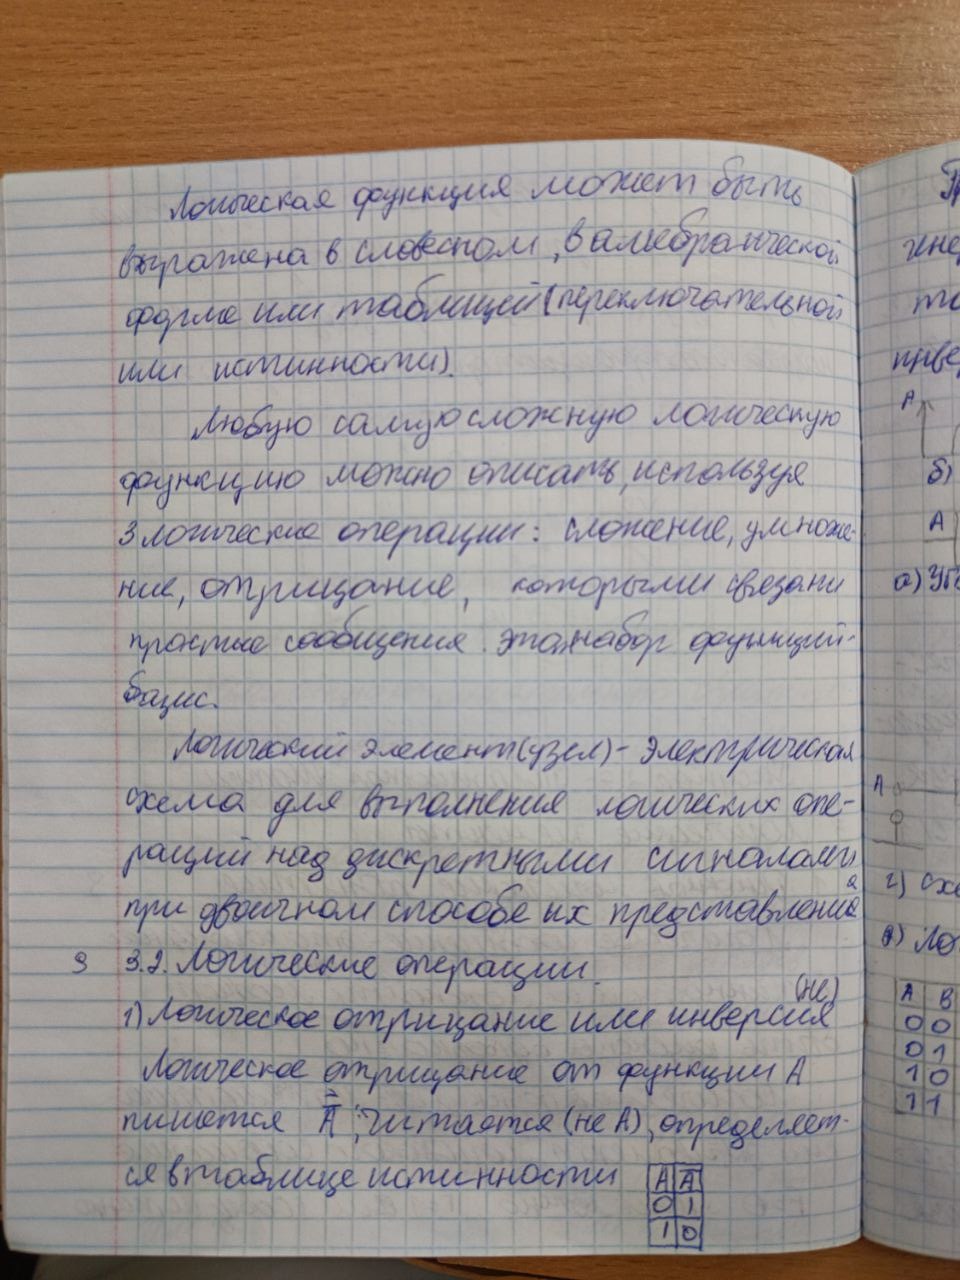 Логическая функция может быть
выражена в словесном, в алгебраической
форме или таблицей (переключательной
или истинности).
Любую самую сложную логическую
функцию можно описать, используя
3 логические операции: сложение, умноже-
ние, отрицание, которыми связани
простые сообщения. этот набор функций-
базис.
Логический элемент (узел) - электрическая
схема для выполнения логических опе-
раций над дискретными сигналами
при двоичном способе их представления
3 3.2. Логические операции.
1) Логическое отрицание или инверсия (не)
Логическое отрицание от функции А
пишется Ā, читается (не А), определяет-
ся в таблице истинности
А Ā
0 1
1 0
А
б)
А
а)
А
г) схе
А В
0 0
0 1
1 0
1 1